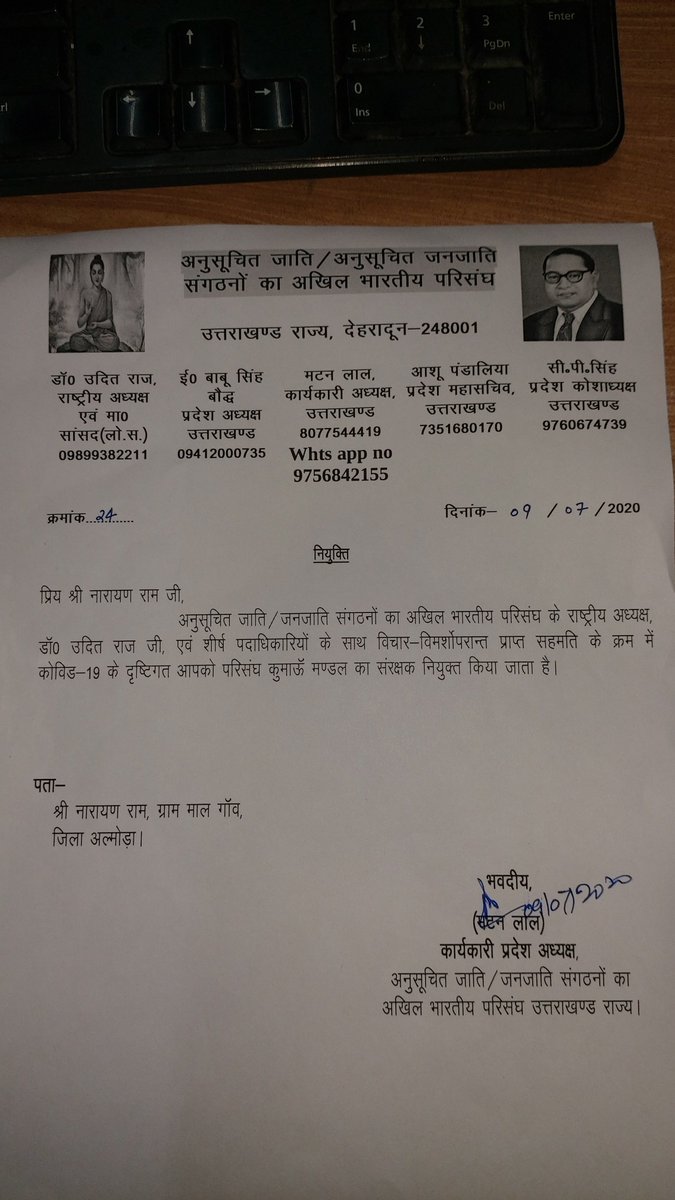 rl
↑
1
End
2
↓
3
PgDn
Enter
←
↓
→
0
Ins
Del
अनुसूचित जाति/अनुसूचित जनजाति
संगठनों का अखिल भारतीय परिसंघ
उत्तराखण्ड राज्य, देहरादून–248001
डॉ0 उदित राज,
राष्ट्रीय अध्यक्ष
एवं मा0
सांसद(लो.स.)
09899382211
ई0 बाबू सिंह
बौद्ध
प्रदेश अध्यक्ष
उत्तराखण्ड
09412000735
मटन लाल,
कार्यकारी अध्यक्ष,
उत्तराखण्ड
8077544419
Whts app no
9756842155
आशू पंडालिया
प्रदेश महासचिव,
उत्तराखण्ड
7351680170
सी.पी.सिंह
प्रदेश कोशाध्यक्ष
उत्तराखण्ड
9760674739
क्रमांक...24......
दिनांक– 09 / 07 / 2020
नियुक्ति
प्रिय श्री नारायण राम जी,
अनुसूचित जाति/जनजाति संगठनों का अखिल भारतीय परिसंघ के राष्ट्रीय अध्यक्ष,
डॉ0 उदित राज जी, एवं शीर्ष पदाधिकारियों के साथ विचार–विमर्शोपरान्त प्राप्त सहमति के क्रम में
कोविड–19 के दृष्टिगत आपको परिसंघ कुमाऊॅ मण्डल का संरक्षक नियुक्त किया जाता है।
पता–
श्री नारायण राम, ग्राम माल गॉव,
जिला अल्मोड़ा।
भवदीय,
09/07/2020
(मटन लाल)
कार्यकारी प्रदेश अध्यक्ष,
अनुसूचित जाति/जनजाति संगठनों का
अखिल भारतीय परिसंघ उत्तराखण्ड राज्य।